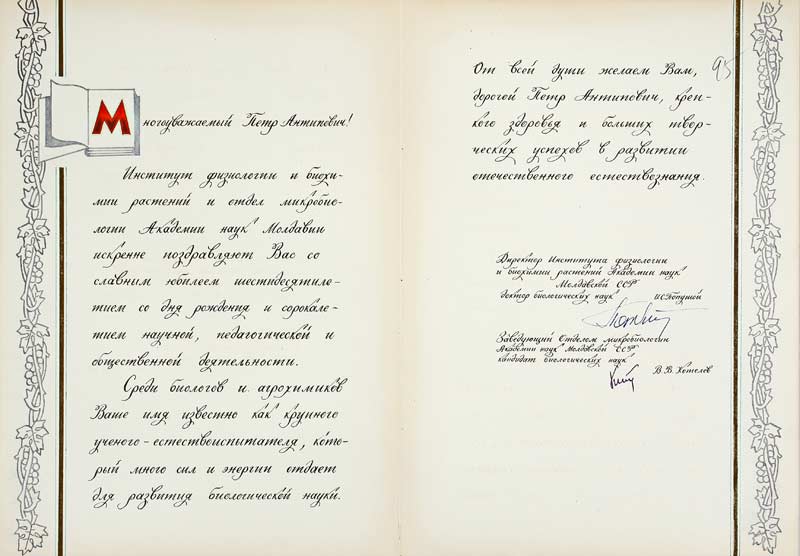 Многоуважаемый Петр Антипович!
Институт физиологии и биохи-
мии растений и отдел микробио-
логии Академии наук Молдавии
искренне поздравляют Вас со
славным юбилеем шестидесятиле-
тием со дня рождения и сорокале-
тием научной, педагогической и
общественной деятельности.
Среди биологов и агрохимиков
Ваше имя известно как крупного
ученого-естествоиспытателя, кото-
рый много сил и энергии отдает
для развития биологической науки.
От всей души желаем Вам,
95
дорогой Петр Антипович, креп-
кого здоровья и больших твор-
ческих успехов в развитии
отечественного естествознания.
Директор Института физиологии
и биохимии растений Академии наук
Молдавской ССР
доктор биологических наук И.С.Попушой
Заведующий Отделом микробиологии
Академии наук Молдавской ССР
кандидат биологических наук
В.В.Котелев